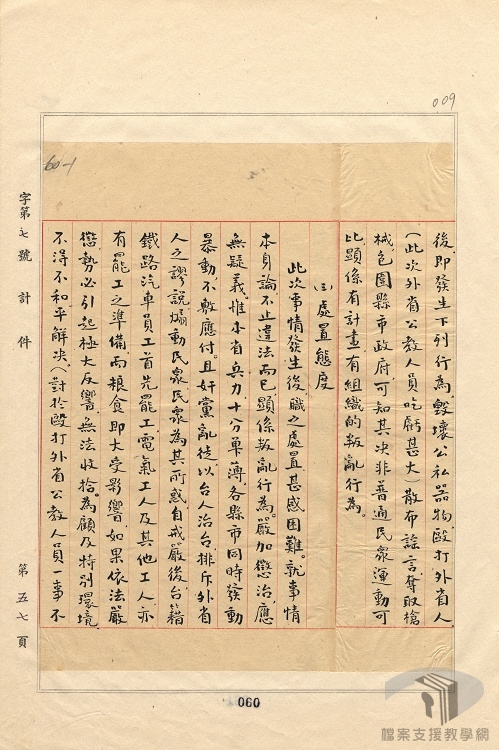 009
60-1
後即發生下列行為毀壞公私器物毆打外省人
(此次外省公教人員吃虧甚大)散布謠言奪取槍
械包圍縣市政府可知其決非普通民眾運動可
比顯係有計畫有組織的叛亂行為。
㈢處置態度
此次事情發生後職之處置甚感困難。就事情
本身論不止違法而已顯係叛亂行為。嚴加懲治應
無疑義。惟本省兵力十分單薄各縣市同時發動
暴動不敷應付。且奸黨亂徒以台人治台排斥外省
人之謬說煽動民眾民眾為其所惑自戒嚴後台籍
鐵路汽車員工首先罷工電氣工人及其他工人亦
有罷工之準備而粮食即大受影響如果依法嚴
懲勢必引起極大反響無法收拾。為顧及特別環境
不得不和平解決(對於毆打外省公教人員一事不
字第 七 號 計 件
第 五 七 頁
060
檔案支援教學網